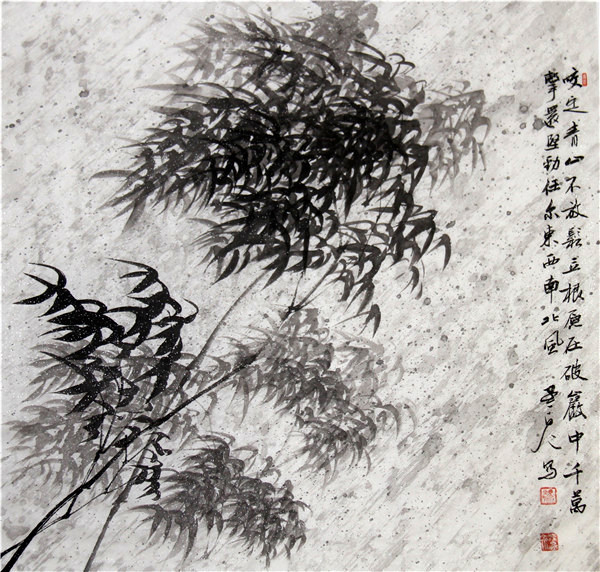 咬定青山不放鬆立根原在破巖中千萬
擊還堅勁任尔東西南北風 写